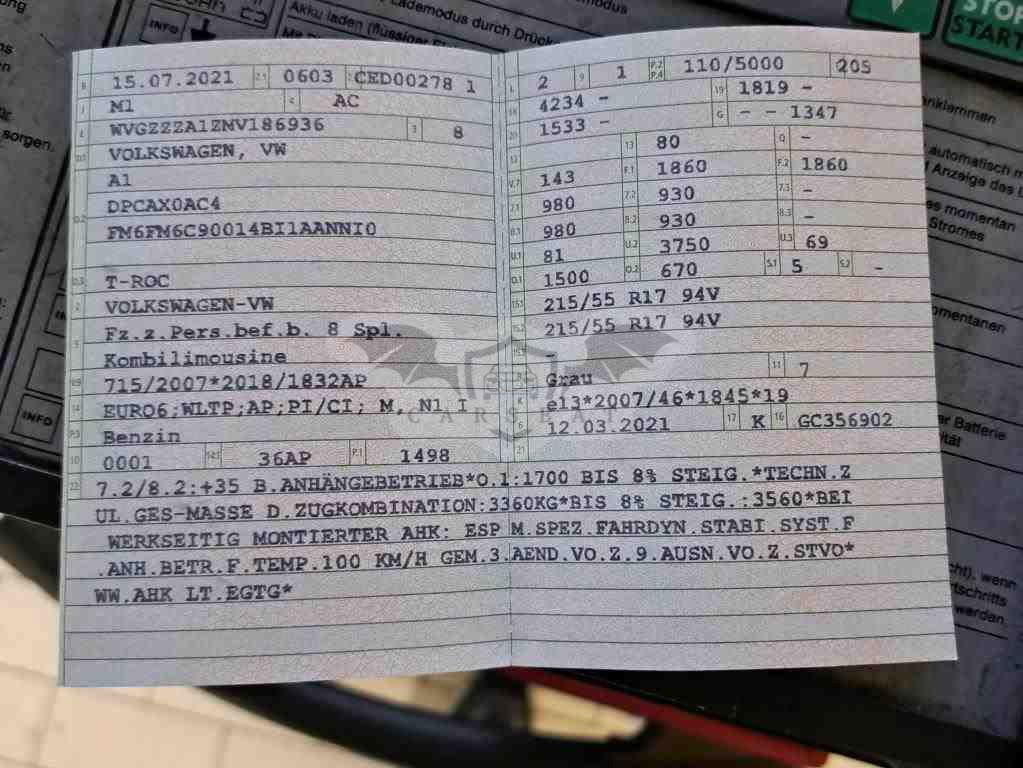 Lademodus durch Drück
modus
Akku laden (flüssiger
INFO
STOP
START
sorgen.
anklemmen
automatisch m
Anzeige des L
es momentan
Stromes
omentanen
er Batterie
INFO
wenn
rtschritts
werden.
B 15.07.2021 2.1 0603 CED00278 1
J M1 4 AC
E WVGZZZA1ZMV186936 3 8
D.1 VOLKSWAGEN, VW
A1
D.2 DPCAX0AC4
FM6FM6C90014BI1AANNI0
D.3 T-ROC
2 VOLKSWAGEN-VW
5 Fz.z.Pers.bef.b. 8 Spl.
Kombilimousine
V.9 715/2007*2018/1832AP
14 EURO6;WLTP;AP;PI/CI; M, N1 I
P.3 Benzin
10 0001 14.1 36AP P.1 1498
L 2 9 1 P.2 P.4 110/5000 205
18 4234 - 19 1819 -
20 1533 - G - - 1347
12 13 80 Q -
V.7 143 F.1 1860 F.2 1860
7.1 980 7.2 930 7.3 -
8.1 980 8.2 930 8.3 -
U.1 81 U.2 3750 U.3 69
O.1 1500 O.2 670 S.1 5 S.2 -
15.1 215/55 R17 94V
15.2 215/55 R17 94V
15.3 -
R Grau 11 7
K e13*2007/46*1845*19
6 12.03.2021 17 K 16 GC356902
21
22 7.2/8.2:+35 B.ANHÄNGEBETRIEB*O.1:1700 BIS 8% STEIG.*TECHN.Z
UL.GES-MASSE D.ZUGKOMBINATION:3360KG*BIS 8% STEIG.:3560*BEI
WERKSEITIG MONTIERTER AHK: ESP M.SPEZ.FAHRDYN.STABI.SYST.F
.ANH.BETR.F.TEMP.100 KM/H GEM.3.AEND.VO.Z.9.AUSN.VO.Z.STVO*
WW.AHK LT.EGTG*
CARSEAT